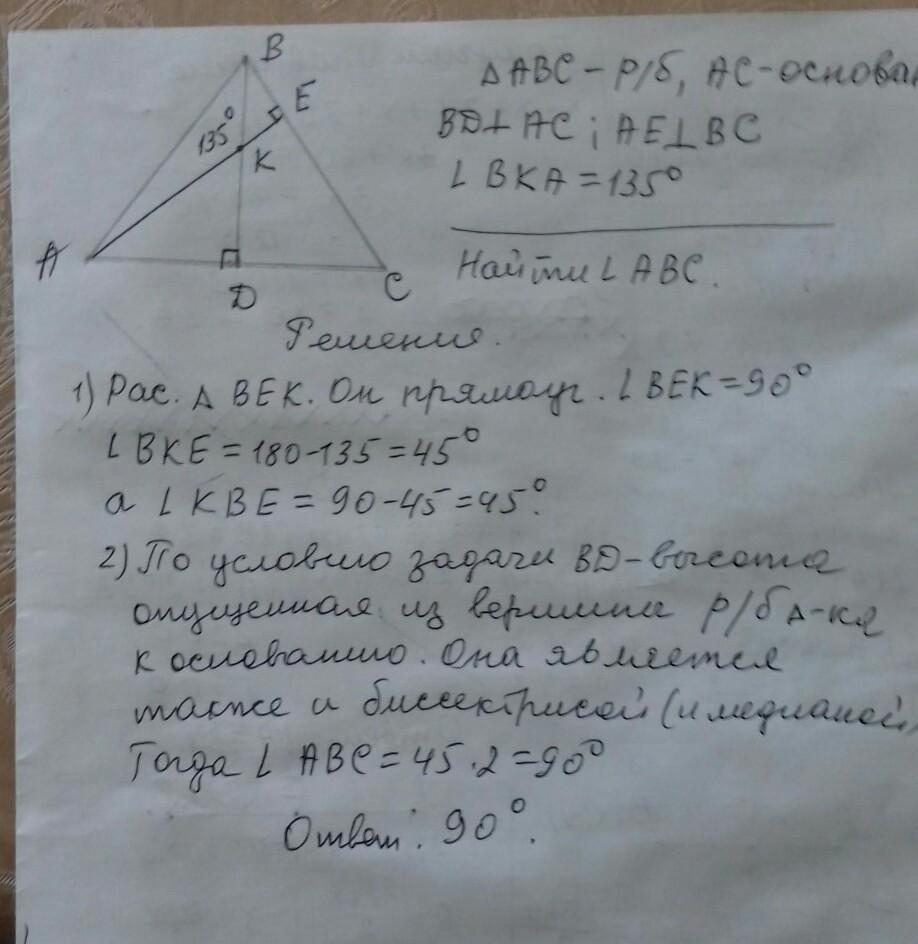 B
E
135°
K
A
D
C
Δ ABC - р/б, AC-основа
BD⊥AC ; AE⊥BC
∠ BKA = 135°
Найти ∠ ABC.
Решения.
1) Рас. Δ BEK. Он прямоуг. ∠ BEK = 90°
∠ BKE = 180-135 = 45°
а ∠ KBE = 90-45 = 45°.
2) По условию задачи BD-высота
опущенная из вершины р/б Δ-ка
к основанию. Она является
также и биссектрисой (и медианой)
Тогда ∠ ABC = 45·2 = 90°
Ответ: 90°.